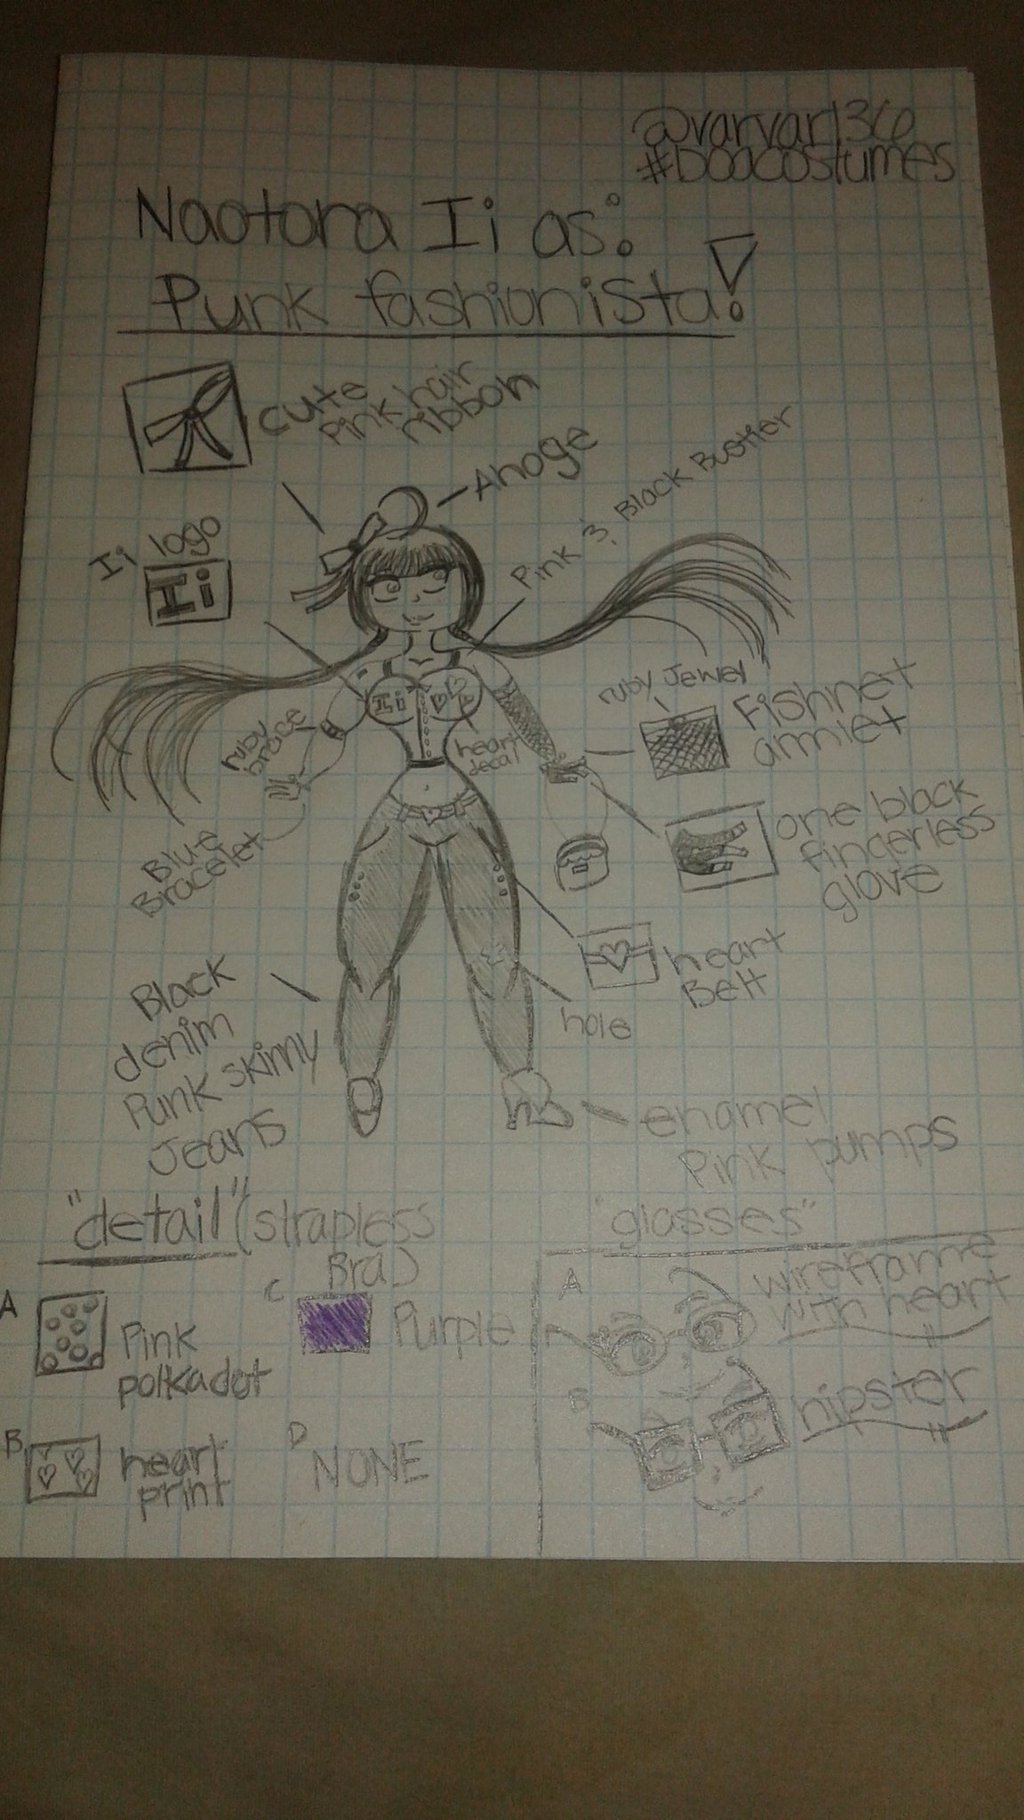 @varvar136
#boacostumes
Naotora Ii as:
Punk fashionista!
cute
pink hair
ribbon
Ahoge
Pink & Black Bustier
Ii logo
Ii
Ii
ruby jewel
Fishnet
armlet
ruby
brace
heart
decal
Blue
Bracelet
one black
fingerless
glove
heart
Belt
hole
Black
denim
Punk skinny
Jeans
enamel
Pink pumps
"detail" (strapless
Bra)
A
Pink
polkadot
C
Purple
B
heart
print
D
NONE
"glasses"
A
wireframe
with heart
B
hipster